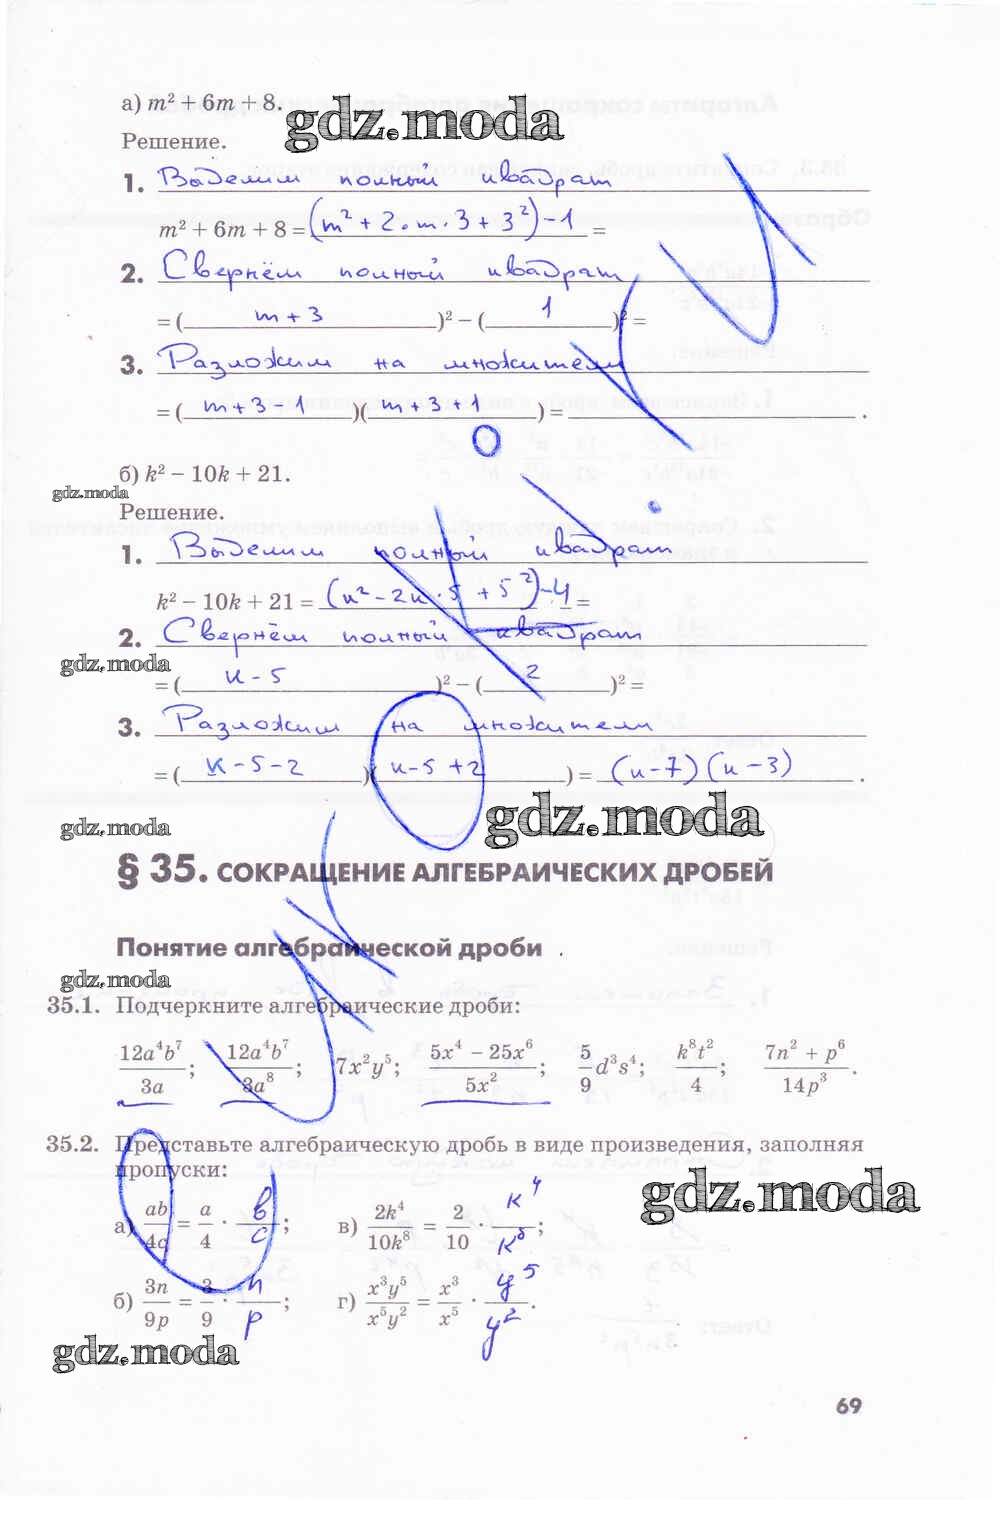 а) m² + 6m + 8.
gdz.moda
Решение.
1. Выделим полный квадрат
m² + 6m + 8 = (m² + 2·m·3 + 3²) – 1 =
2. Свернём полный квадрат
= ( m + 3 )² – ( 1 )² =
3. Разложим на множители
= ( m + 3 – 1 )( m + 3 + 1 ) = .
б) k² – 10k + 21.
gdz.moda
Решение.
1. Выделим полный квадрат
k² – 10k + 21 = (k² – 2k·5 + 5²) – 4 =
2. Свернём полный квадрат
gdz.moda
= ( k – 5 )² – ( 2 )² =
3. Разложим на множители
= ( k – 5 – 2 )( k – 5 + 2 ) = (k – 7)(k – 3) .
gdz.moda
gdz.moda
§ 35. СОКРАЩЕНИЕ АЛГЕБРАИЧЕСКИХ ДРОБЕЙ
Понятие алгебраической дроби
gdz.moda
35.1. Подчеркните алгебраические дроби:
12a⁴b⁷/3a; 12a⁴b⁷/3a⁸; 7x²y⁵; (5x⁴ – 25x⁶)/5x²; 5/9 d³s⁴; k⁸t²/4; (7n² + p⁶)/14p³.
35.2. Представьте алгебраическую дробь в виде произведения, заполняя
пропуски:
gdz.moda
а) ab/4c = a/4 · b/c; в) 2k⁴/10k⁸ = 2/10 · k⁴/k⁸;
б) 3n/9p = 3/9 · n/p; г) x³y⁵/x⁵y² = x³/x⁵ · y⁵/y².
gdz.moda
69